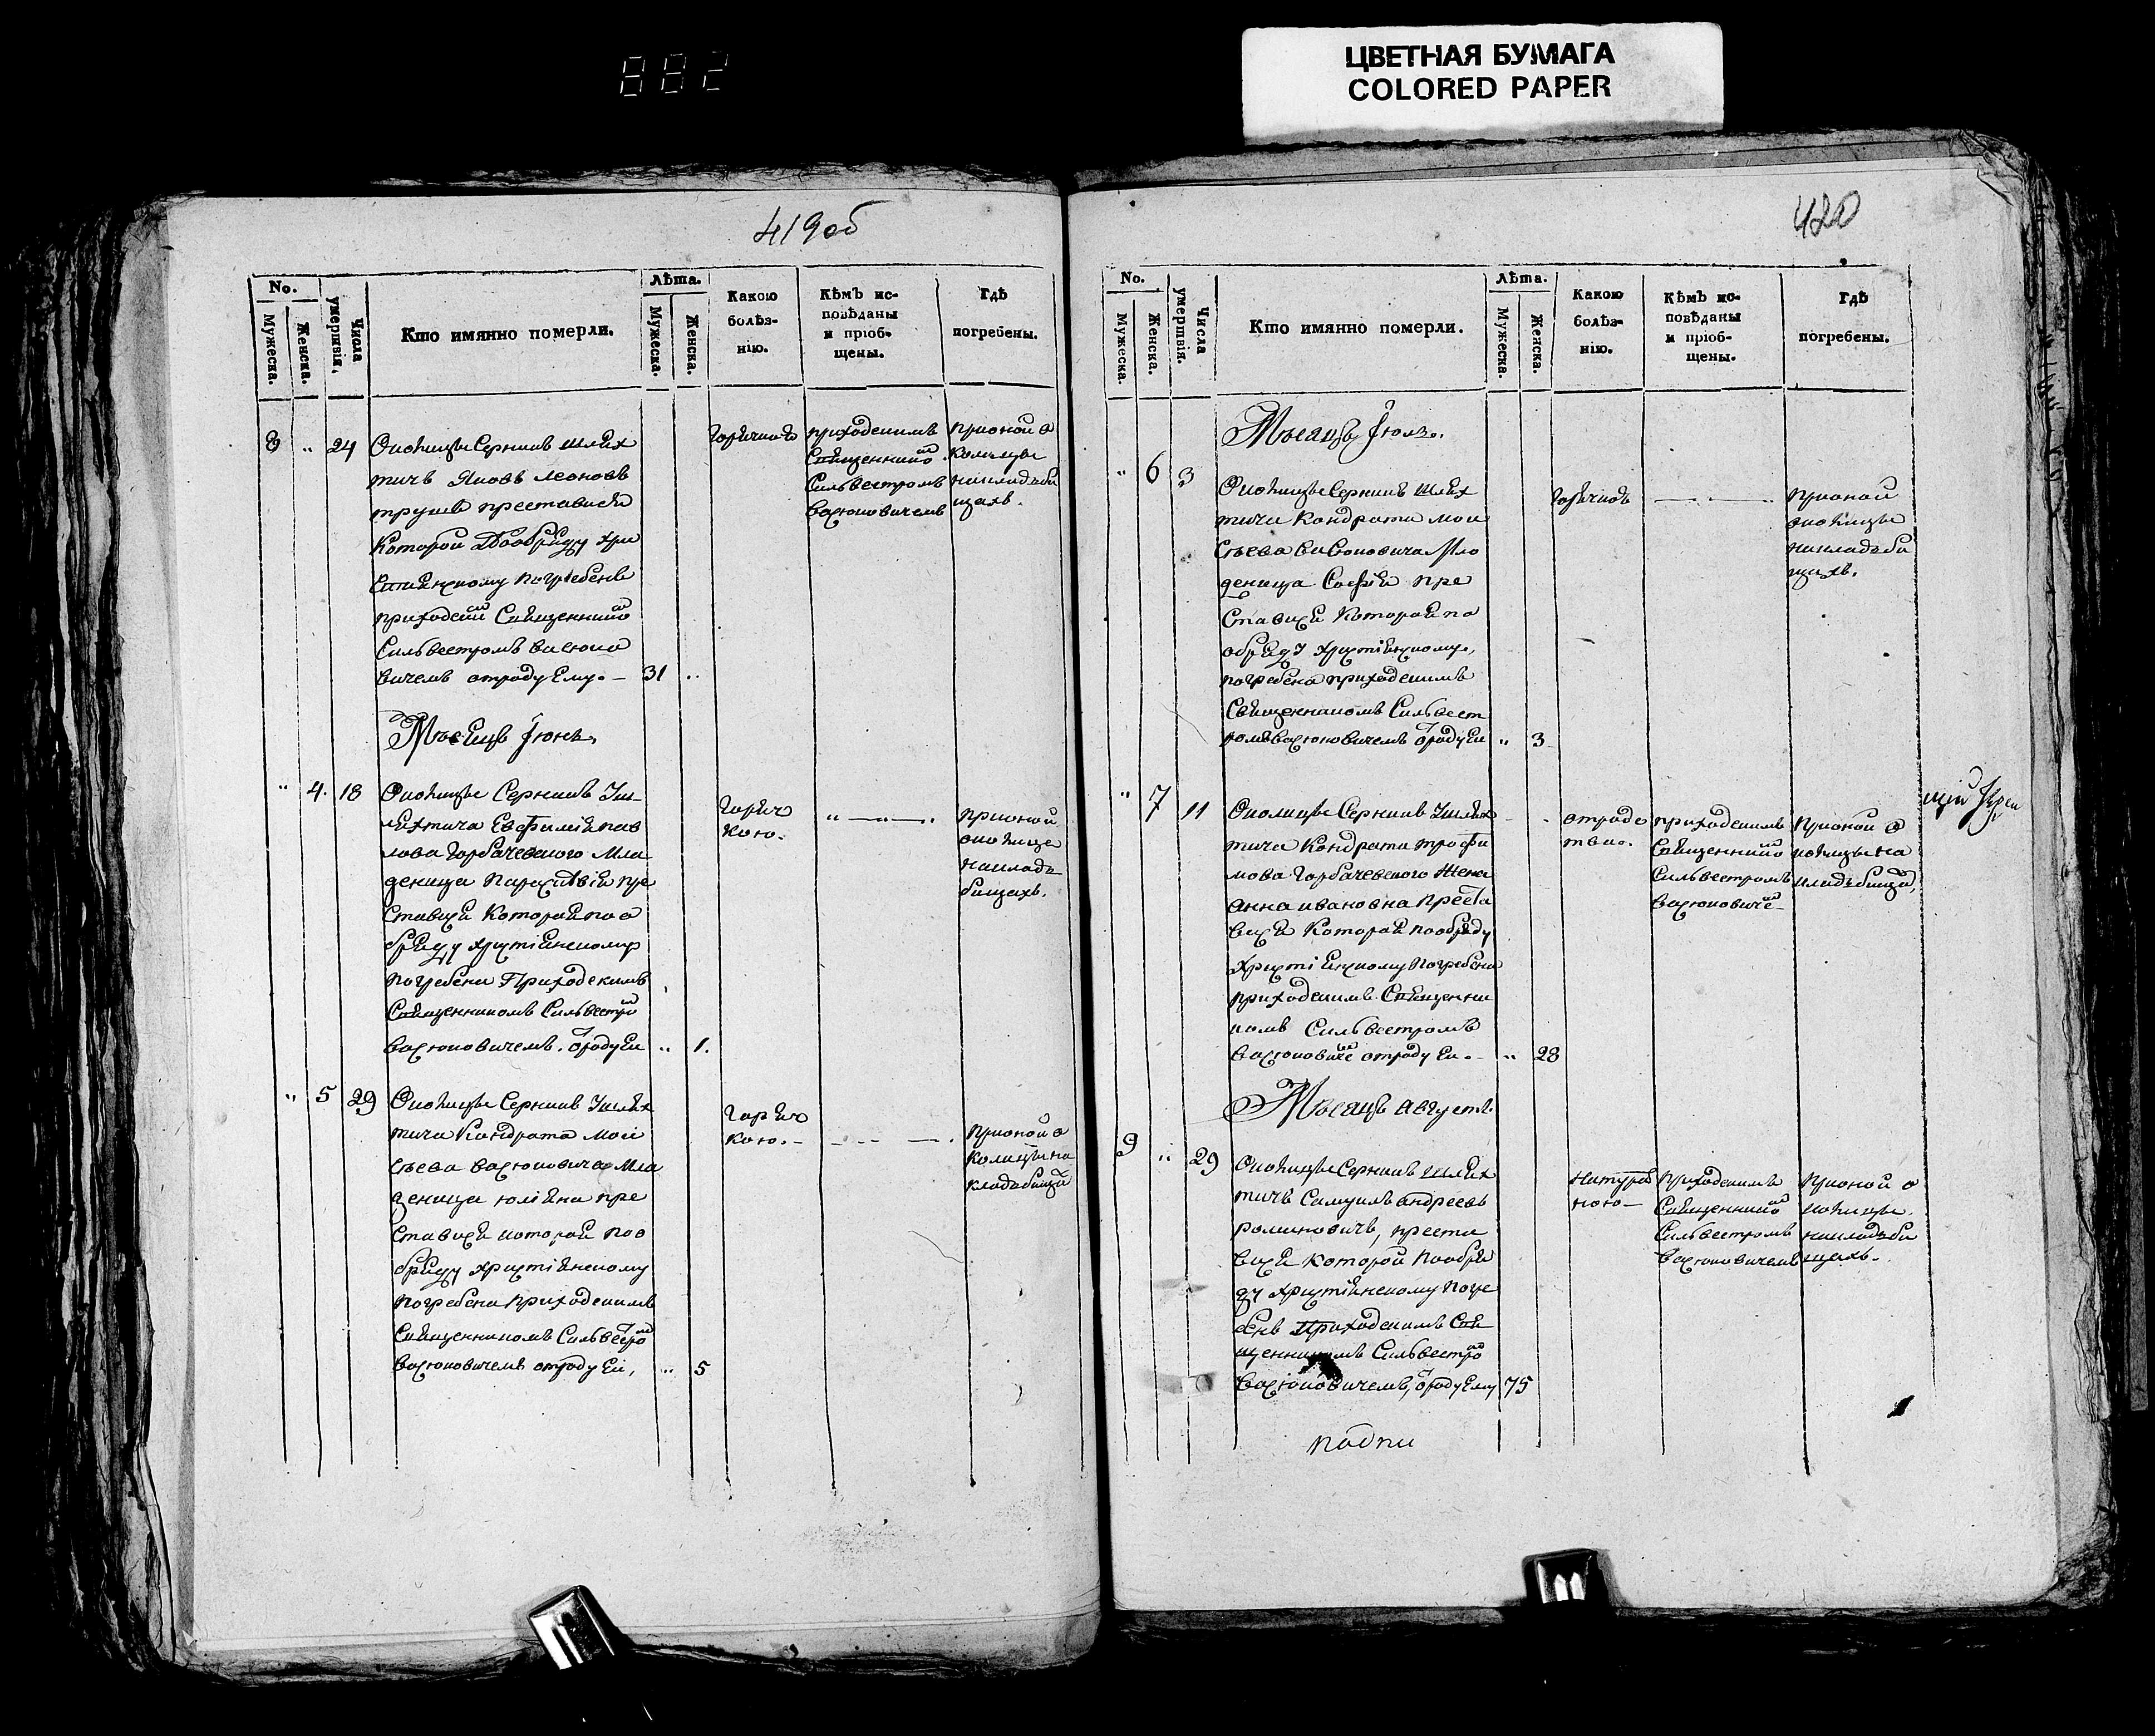 882
ЦВЕТНАЯ БУМАГА
COLORED PAPER
419об
No.
Мужеска.
Женска.
Числа умершвія.
Кто имянно померли.
Лѣта.
Мужеска.
Женска.
Какою болѣз-
нію.
Кѣмъ ис-
повѣданы
и пріоб-
щены.
Гдѣ
погребены.
8 " 24
Околицы Сернинъ шлях
тичъ Яковъ Леоновъ
преставися
которой пообряду хри
стиянскому погребенъ
приходски Священнико
Сильвестромъ Васюко
вичемъ отроду Ему. — 31 "
приходскимъ
Священнико
Сильвестромъ
Васюковичемъ
при оной о
колицы
накладби
щахъ.
Мѣсяцъ Іюнь.
" 4. 18
Околицы Сернинъ Ш
ляхтича Евфимія пав
лова Горбачевского Мла
деница Параскевія пре
ставися которая поо
бряду христіянскому
погребена Приходскимъ
Священникомъ Сильвестро
Васюковичемъ. отроду Еи " 1.
Горяч
кою.
" — " — "
при оной
околице
накладъ
бищахъ.
" 5 29
Околицы Сернинъ Шлях
тича Кондрата Мои
сѣева Васюковича Мла
деница Юліяна пре
ставися которой поо
бряду христіянскому
погребена приходскимъ
Священникомъ Сильвестро
Васюковичемъ отроду Еи, " 5
Горяч
кою. —
при оной о
колицы на
кладбищах
420
No.
Мужеска.
Женска.
Числа умершвія.
Кто имянно померли.
Лѣта.
Мужеска.
Женска.
Какою болѣз-
нію.
Кѣмъ ис-
повѣданы
и пріоб-
щены.
Гдѣ
погребены.
Мѣсяцъ Іюль.
" 6 3
Околицы Сернинъ Шлях
тича Кондрата Мои
сѣева Васюковича Мло
деница Софія пре
ставися которая по
обряду христіянскому,
погребена приходскимъ
Священникомъ Сильвест
ромъ Васюковичемъ отроду Еи " 3
при оной
околицы
накладби
щахъ.
" 7 11
Околицы Сернинъ Шлях
тича Кондрата Трофи
мова Горбачевского Жена
Анна Ивановна Преста
вися Которая пообряду
христіянскому погребена
приходскимъ Священни
комъ Сильвестромъ
Васюковиче отроду Еи. — " 28
отродо
тва.
приходскимъ
Священнико
Сильвестромъ
Васюковиче
при оной о
колицы на
кладбищах,
Мѣсяцъ Августъ
9 " 29
Околицы Сернинъ шлях
тичъ Самуилъ Андреевъ
Романовичъ, преста
вися которой пообря
ду христіянскому погре
бенъ Приходскимъ Свя
щенникомъ Сильвестро
Васюковичемъ, отроду Ему 75
Натурал
ною —
приходскимъ
Священнико
Сильвестромъ
Васюковичемъ
при оной о
колицы
накладби
щахъ.
подпи